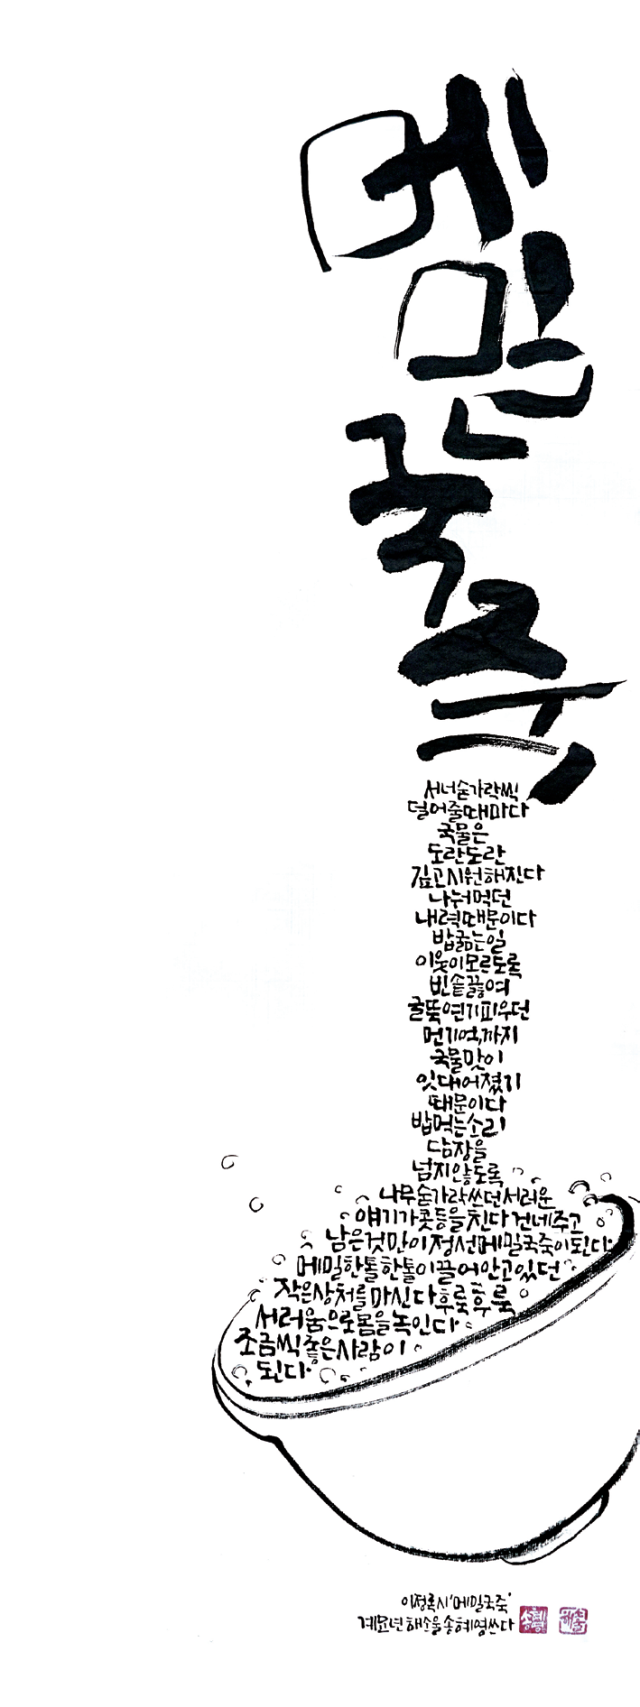 메
밀
국
죽
서너숟가락씩
덜어줄때마다
국물은
도란도란
깊고시원해진다
나눠먹던
내력때문이다
밥굶는일
이웃이모르도록
빈솥끓여
굴뚝연기피우던
먼기억까지
국물맛이
잇대어졌기
때문이다
밥먹는소리
담장을
넘지않도록
나무숟가락쓰던서러운
얘기가콧등을친다건네주고
남은것만이정선메밀국죽이된다
메밀한톨한톨이끌어안고있던
작은상처를마신다후룩후룩
서러움으로몸을녹인다
조금씩좋은사람이
된다
이정록시'메밀국죽'
계묘년해소울송혜영쓴다